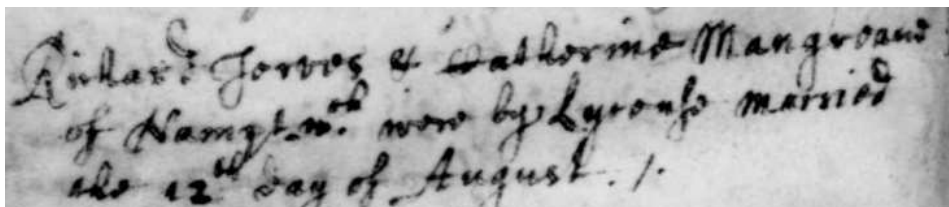 Richard Jerves & Katherine Mangroave
of Namptw.ch were by Lycense married
the 12th day of August. /.